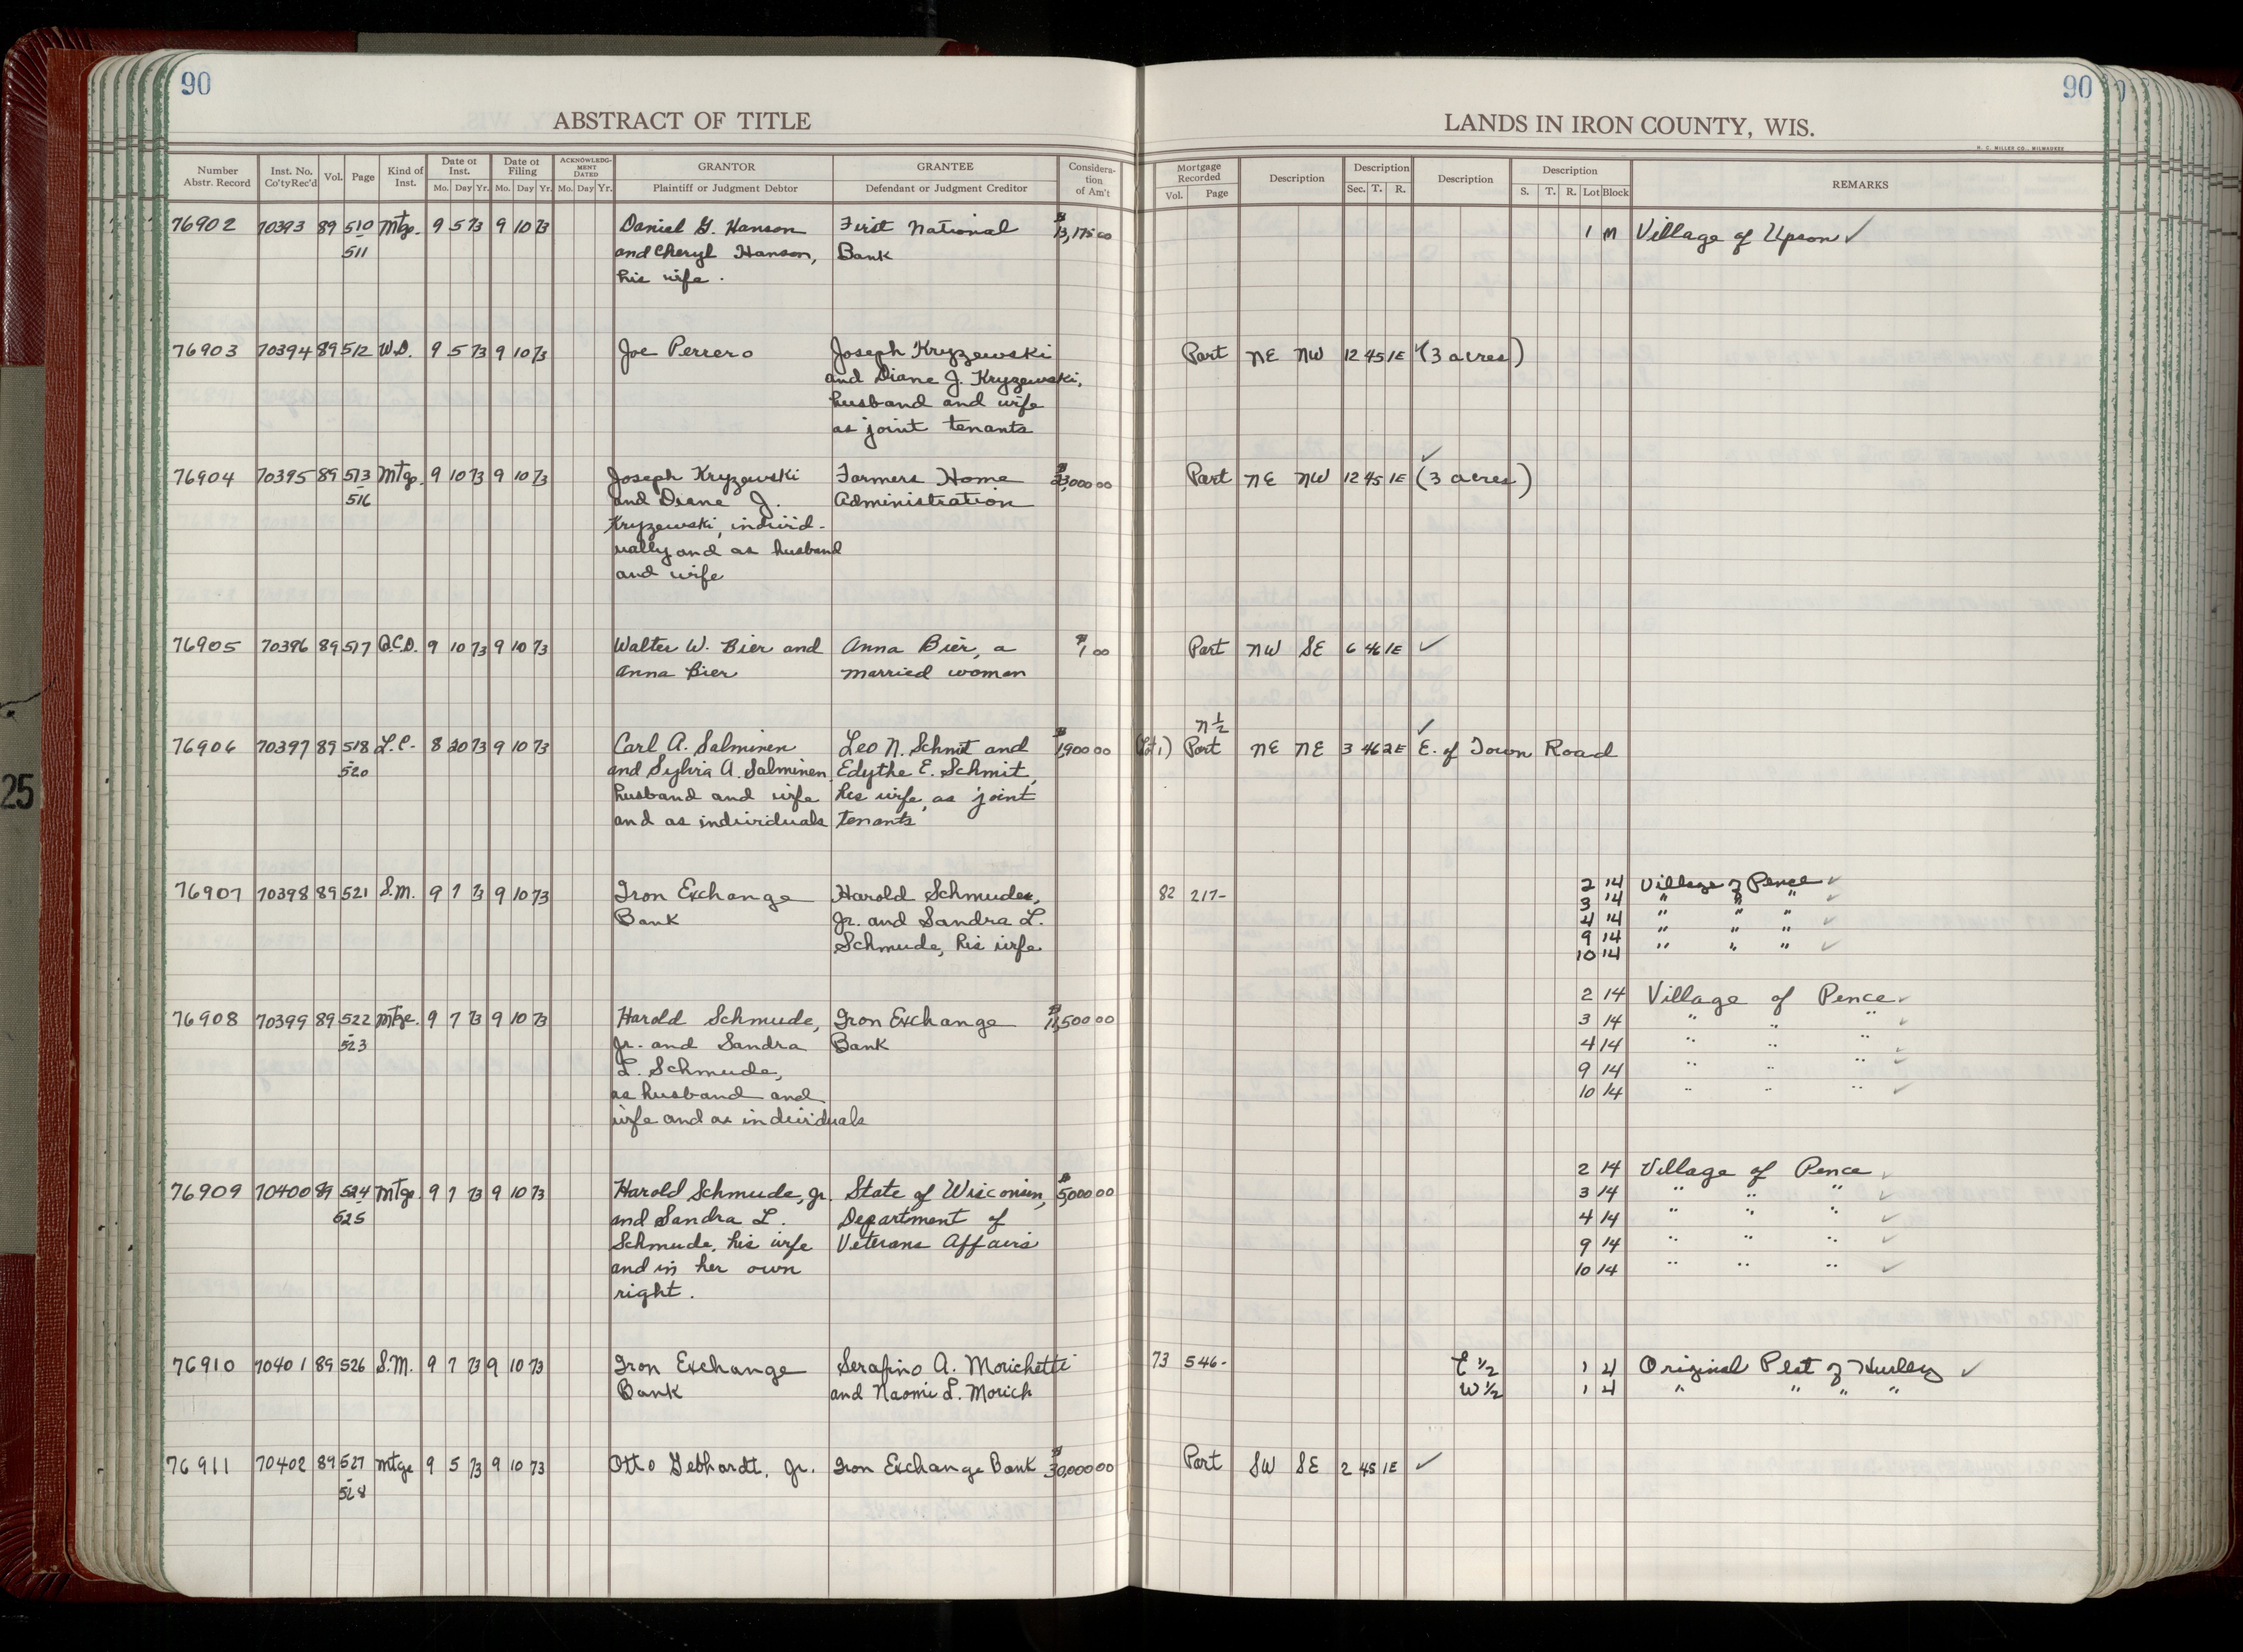 90
90
ABSTRACT OF TITLE
LANDS IN IRON COUNTY, WIS.
H. C. MILLER CO., MILWAUKEE
Number Abstr. Record | Inst. No. Co'ty Rec'd | Vol. | Page | Kind of Inst. | Date of Inst. Mo. Day Yr. | Date of Filing Mo. Day Yr. | ACKNOWLEDGMENT DATED Mo. Day Yr. | GRANTOR Plaintiff or Judgment Debtor | GRANTEE Defendant or Judgment Creditor | Consideration of Am't | Mortgage Recorded Vol. Page | Description | Description Sec. T. R. | Description | Description S. T. R. Lot Block | REMARKS
76902 70393 89 510 Mtge. 9 5 73 9 10 73 Daniel G. Hanson First National $13,175 00 1 M Village of Upson ✓
- 511 and Cheryl Hanson, Bank
his wife.
76903 70394 89 512 W.D. 9 5 73 9 10 73 Joe Perrero Joseph Kryzewski Part NE NW 12 45 1E ✓(3 acres)
and Diane J. Kryzewski,
husband and wife
as joint tenants
✓
76904 70395 89 513 Mtge. 9 10 73 9 10 73 Joseph Kryzewski Farmers Home $23,000 00 Part NE NW 12 45 1E (3 acres)
- 516 and Diane J. Administration
Kryzewski, individ-
ually and as husband
and wife
76905 70396 89 517 Q.C.D. 9 10 73 9 10 73 Walter W. Bier and Anna Bier, a $1 00 Part NW SE 6 46 1E ✓
Anna Bier married woman
N½ ✓
76906 70397 89 518 L.C. 8 20 73 9 10 73 Carl A. Salminen Leo N. Schmit and $1,900 00 (Lot 1) Part NE NE 3 46 2E E. of Town Road
- 520 and Sylvia A. Salminen, Edythe E. Schmit,
husband and wife his wife, as joint
and as individuals tenants
76907 70398 89 521 S.M. 9 7 73 9 10 73 Iron Exchange Harold Schmude, 82 217- 2 14 Village of Pence ✓
Bank Jr. and Sandra L. 3 14 " " " ✓
Schmude, his wife 4 14 " " " ✓
9 14 " " " ✓
10 14 " " " ✓
2 14 Village of Pence ✓
76908 70399 89 522 Mtge. 9 7 73 9 10 73 Harold Schmude, Iron Exchange $11,500 00 3 14 " " " ✓
- 523 Jr. and Sandra Bank 4 14 " " " ✓
L. Schmude, 9 14 " " " ✓
as husband and 10 14 " " " ✓
wife and as individuals
2 14 Village of Pence ✓
76909 70400 89 524 Mtge 9 7 73 9 10 73 Harold Schmude, Jr. State of Wisconsin, $5,000 00 3 14 " " " ✓
525 and Sandra L. Department of 4 14 " " " ✓
Schmude, his wife Veterans Affairs 9 14 " " " ✓
and in her own 10 14 " " " ✓
right.
76910 70401 89 526 S.M. 9 7 73 9 10 73 Iron Exchange Serafino A. Morichetti 73 546- E ½ 1 4 Original Plat of Hurley ✓
Bank and Naomi L. Morich W ½ 1 4 " " " "
76911 70402 89 527 Mtge 9 5 73 9 10 73 Otto Gebhardt, Jr. Iron Exchange Bank $30,000 00 Part SW SE 2 45 1E ✓
- 528
25